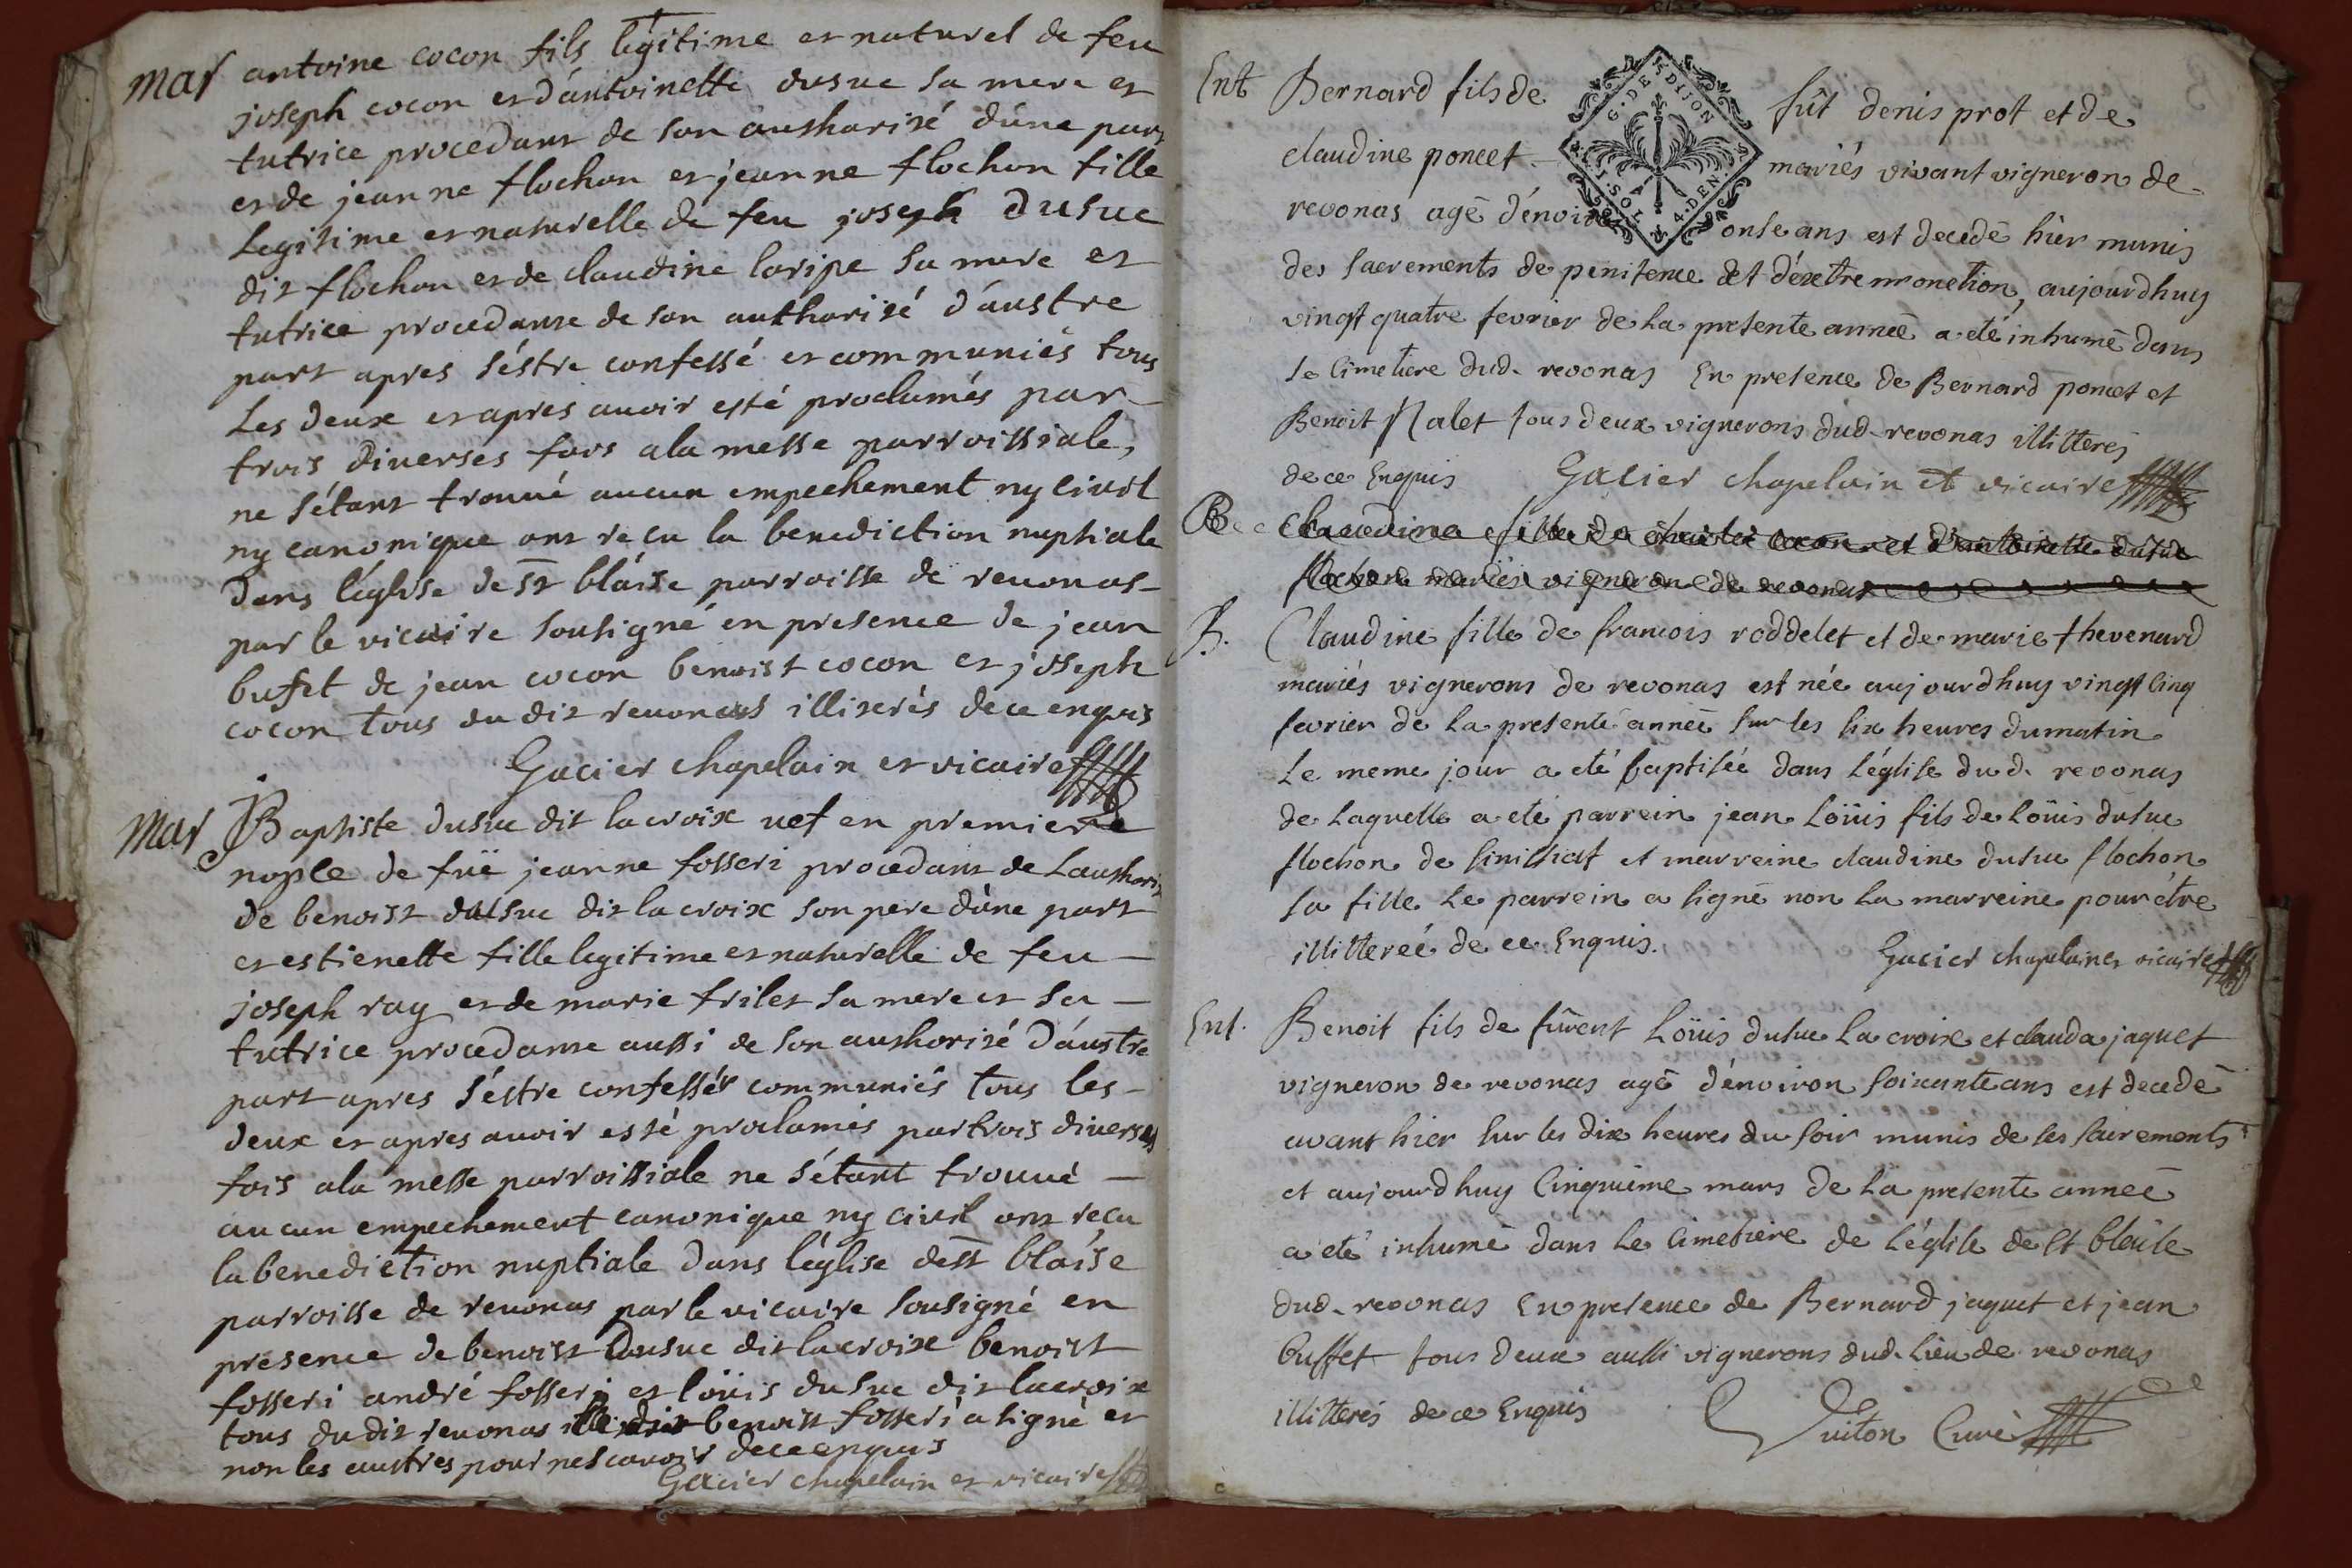 Mar antoine cocon fils légitime et naturel de feu
joseph cocon et d'antoinette dusuc sa mere et
tutrice procedant de son authorité d'úne part
et de jeanne flochon et jeanne flochon fille
Legitime et naturelle de feu joseph dusuc
dit flochon et de claudine laripe sa mere et
tutrice procedante de son authorité d'austre
part apres s'éstre confessé et communiés tous
Les deux et apres auoir esté proclamés par
trois diuerses fois a la messe parroissiale,
ne s'étant trouué aucun empechement ny ciuil
ny canonique ont recu la benediction nuptiale
dans l'églîse de st blaise parroisse de reuonas
par le vicaire sousigné en presence de jean
bufet de jean cocon benoist cocon et joseph
cocon tous du dit reuonas illiterés de ce enquis
Gacier chapelain et vicaire
Mar JBaptiste dusuc dit lacroix uef en premiere
nople de fuë jeanne fosseri procedant de Lauthorité
de benoist dusuc dit lacroix son pere d'úne part
et estienette fille legitime et naturelle de feu
joseph ray et de marie trilet sa mere et sa
tutrice procedante aussi de son authorité d'áustre
part apres s'éstre confessér communiés tous les
deux et apres auoir esté proclamés par trois diuerses
fois a la messe parroissiale ne s'étant trouué
aucun empechement canonique ny ciuil ont recu
la benediction nuptiale dans l'églîse de st blaise
parroisse de reuonas par le vicaire sousigné en
presence de benoist dusuc dit lacroix benoist
fosseri andré fosseri et loüis dusuc dit lacroix
tous du dit reuonas benoist fosseri a signé et
non les austres pour ne scauoir de ce enquis
Gacier chapelain et vicaire
Ent Bernard fils de fût denis prot et de
G. DE DIJON
claudine poncet mariés vivant vigneron de
1. SOL. 4. DEN.
revonas agé d'énviron onse ans est decedé hier munis
des sacrements de penitence et d'éxetremonction, aujourdhuy
vingt quatre fevrier de La presente année a eté inhumé dans
Le Cimetiere dud. revonas En presence de Bernard poncet et
Benoit Nalet tous deux vignerons dud revonas illitterés
de ce Enquis Gacier chapelain et vicaire
B Claudine fille de charles cocon et d'antoinette dusuc
flochon mariés vigneron de revonas
B. Claudine fille de francois roddelet et de marie thevenard
mariés vignerons de revonas est née aujourdhuy vingt Cinq
fevrier de La presente année sur les six heures du matin
Le meme jour a eté baptisée dans L'église dud. revonas
de Laquelle a eté parrein jean Loüis fils de Loüis dusuc
flochon de simissiat et marreine claudine dusuc flochon
sa fille Le parrein a signé non La marreine pour être
illitereé de ce Enquis. Gacier chapelain et vicaire
Ent. Benoit fils de fûrent Loüis dusuc La croix et clauda jaquet
vigneron de revonas agé d'énviron soixante ans est decedé
avant hier sur les dix heures du soir munis de ses sacrements
et aujourdhuy Cinquiéme mars de La presente année
a eté inhumé dans Le Cimetiere de L'église de st blaise
dud. revonas En presence de Bernard jaquet et jean
buffet tous deux aussi vignerons dud. Lieu de revonas
illitterés de ce Enquis Guiton Curé